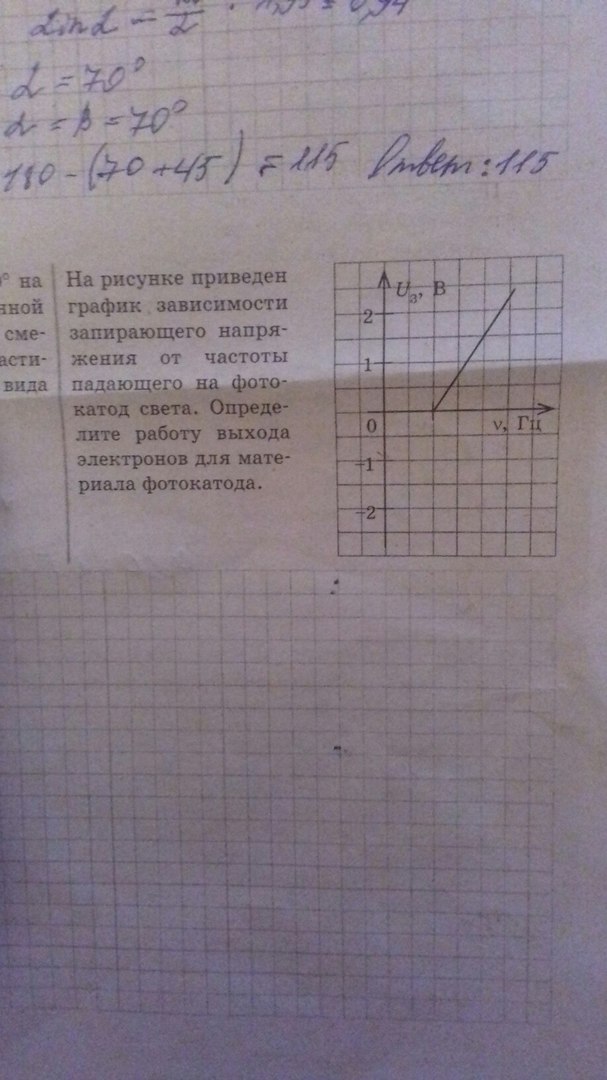 α = 70°
α = β = 70°
180 - (70 + 45) = 115 Ответ: 115
° на
нной
сме-
асти-
вида
На рисунке приведен
график зависимости
запирающего напря-
жения от частоты
падающего на фото-
катод света. Опреде-
лите работу выхода
электронов для мате-
риала фотокатода.
Uз, В
2
1
0
ν, Гц
-1
-2